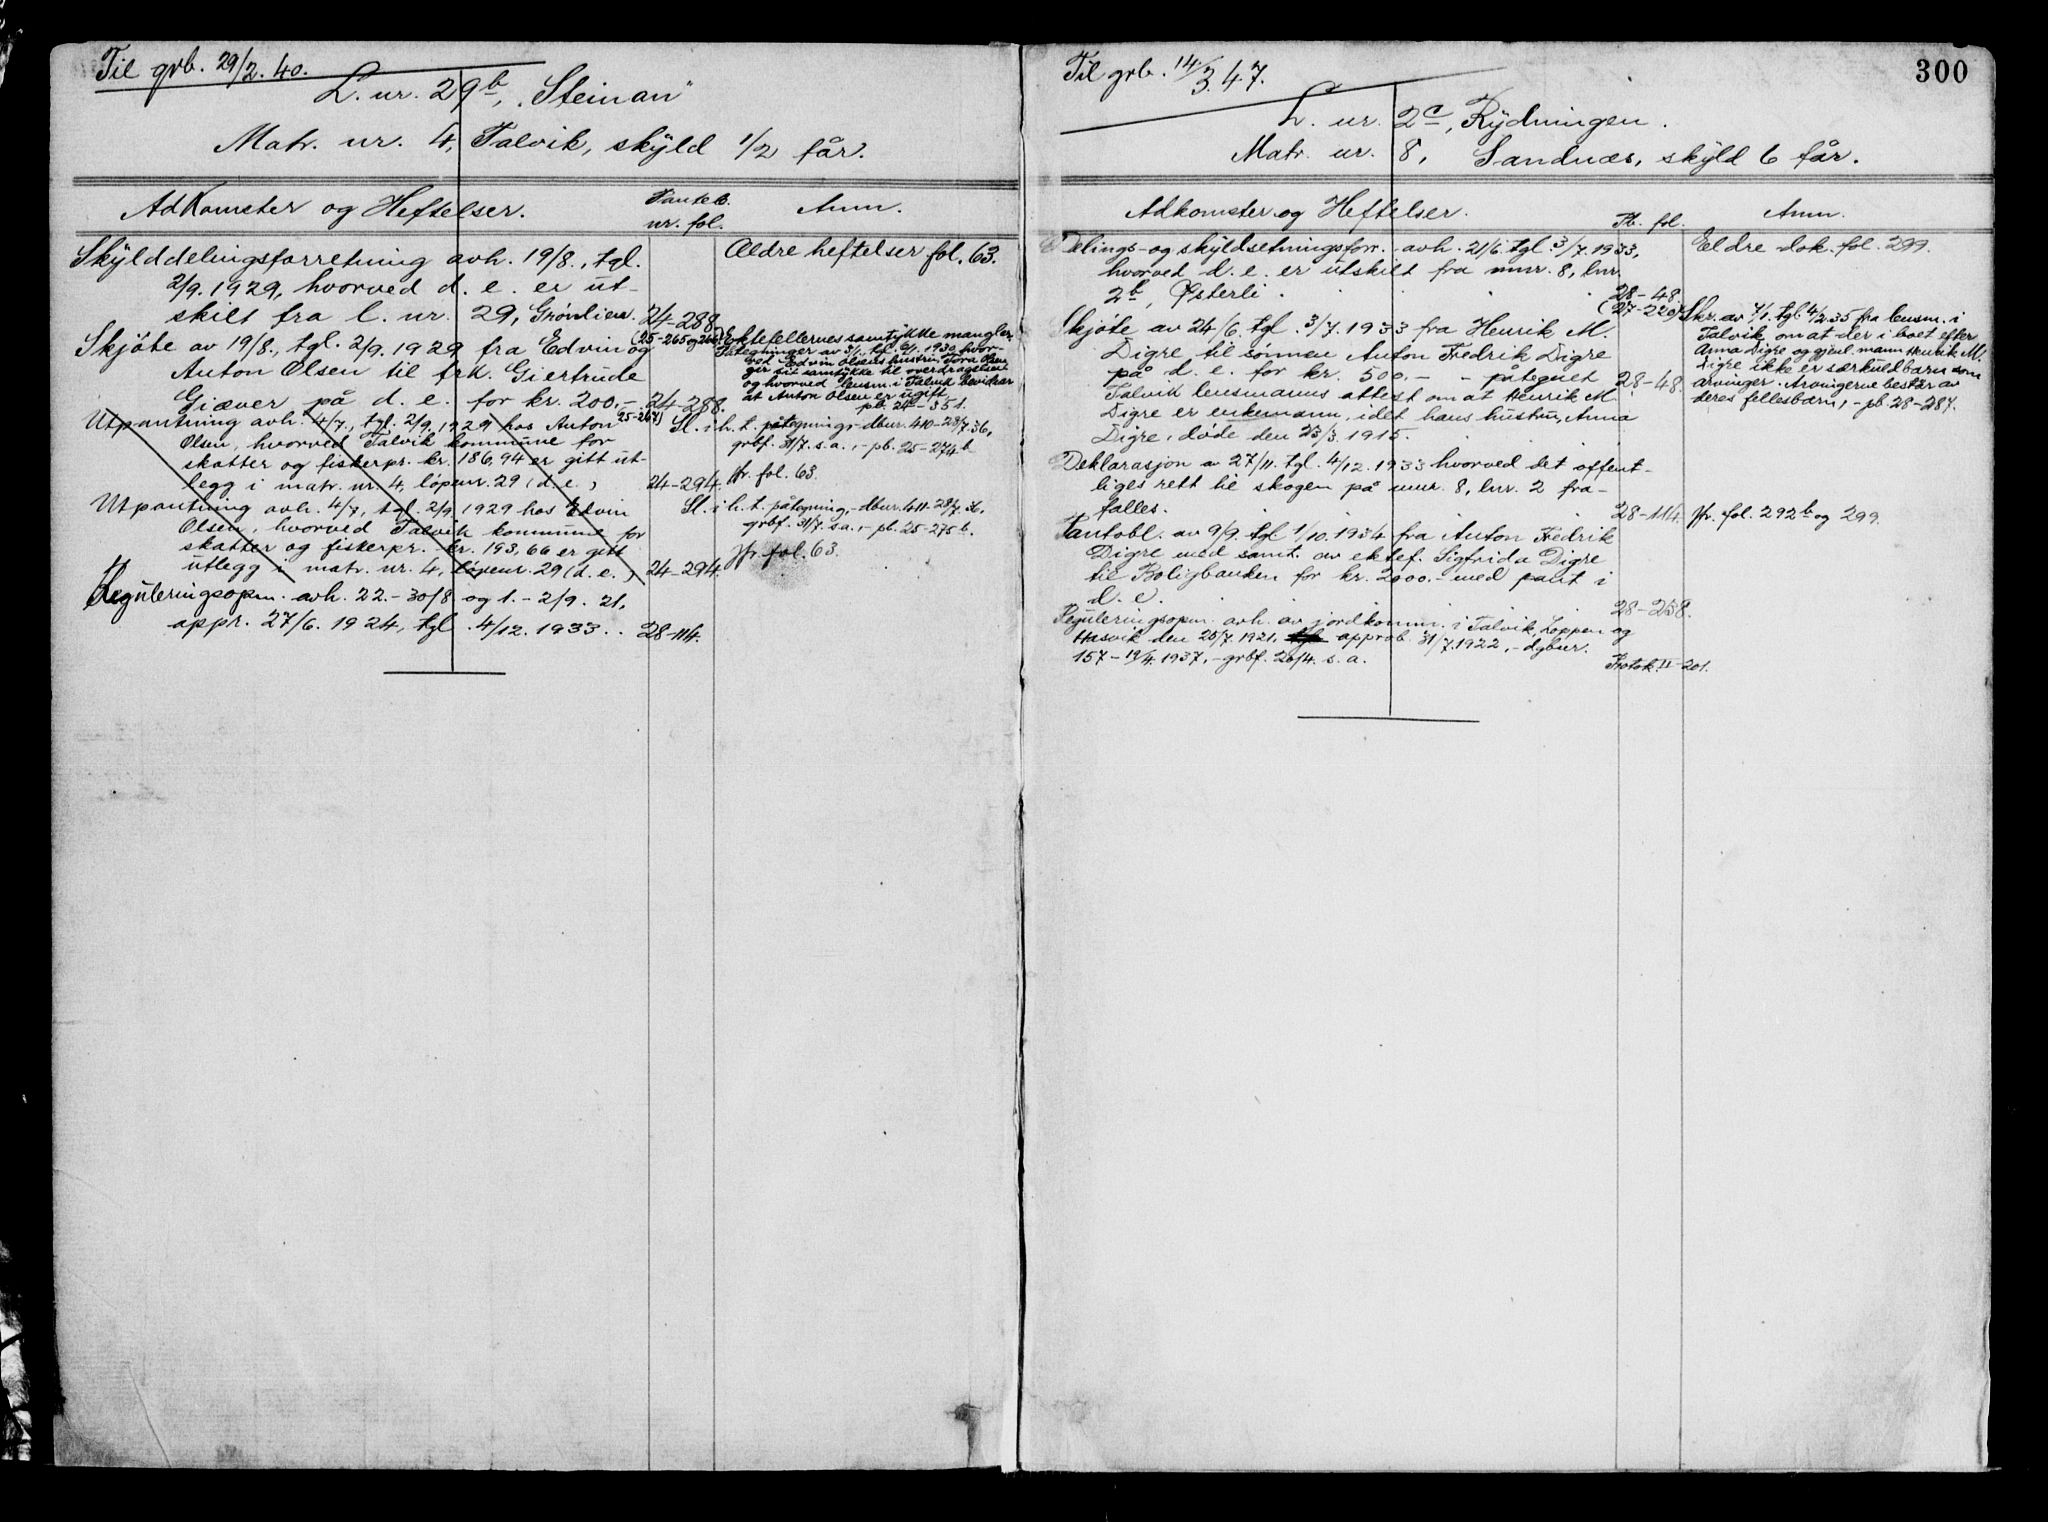 Til grb. 29/2. 40.
L. nr. 29b, "Steinan"
Matr. nr. 4, Talvik, skyld 1/2 får.
Adkomster og Heftelser.
Panteb.
nr. fol.
Anm.
Skylddelingsforretning avh. 19/8., tgl.
2/9. 1929, hvorved d. e. er ut-
skilt fra l. nr. 29, Grønlien.
24-288.
Ældre heftelser fol. 63.
Skjøte av 19/8., tgl. 2/9. 1929 fra Edvin og
Anton Olsen til frk. Giertrude
Giæver på d. e. for kr. 200,-
(25-265 og 266)
24-288.
Ektefellernes samtykke mangler.
Påtegninger av 3/1, tgl. 6/1. 1930, hvor-
ved Edvin Olsens hustru Tora Olsen
gir sit samtykke til overdragelsen
og hvorved lensm. i Talvik bevidner
at Anton Olsen er ugift,
pb. 24-351.
Utpantning avh. 4/7., tgl. 2/9. 1929 hos Anton
Olsen, hvorved Talvik kommune for
skatter og fiskerpr. kr. 186,94 er gitt ut-
legg i matr. nr. 4, løpenr. 29 (d. e.)
25-264)
24-294.
Sl. i h. t. påtegning,- dbnr. 410-28/7. 36,
grbf. 31/7. s. a.,- pb. 25-274b
Jfr. fol. 63.
Utpantning avh. 4/7, tgl. 2/9. 1929 hos Edvin
Olsen, hvorved Talvik kommune for
skatter og fiskerpr. kr. 193,66 er gitt
utlegg i matr. nr. 4, løpenr. 29 (d. e.)
24-294.
Sl. i h. t. påtegning,- dbnr. 411-28/7. 36,
grbf. 31/7. s.a.,- pb. 25-275b.
Jfr. fol. 63.
Reguleringsopm. avh. 22.-30/8 og 1.-2/9. 21,
appr. 27/6. 1924, tgl. 4/12. 1933..
28-114.
300
Til grb. 14/3. 47.
L. nr. 2c, Rydningen.
Matr. nr. 8, Sandnæs, skyld 6 får.
Adkomster og Heftelser.
Pb. fol.
Anm.
Delings- og skyldsetningsforr. avh. 21/6. tgl. 3/7. 1933,
hvorved d. e. er utskilt fra mnr. 8, lnr.
2b, Østerli.
28-48.
Eldre dok. fol. 299.
Skjøte av 24/6. tgl. 3/7. 1933 fra Henrik M.
Digre til sønnen Anton Fredrik Digre
på d. e. for kr. 500.- - påtegnet
Talvik lensmanns attest om at Henrik M.
Digre er enkemann, idet hans hustru, Anna
Digre, døde den 23/3. 1915.
(27-220)
28-48.
Skr. av 7/1. tgl. 4/2. 35 fra lensm. i
Talvik om at der i boet efter
Anna Digre og gjenl. mann Henrik M.
Digre ikke er særkuldbarn som
arvinger. Arvingerne består av
deres fellesbarn,- pb. 28-287.
Deklarasjon av 27/11. tgl. 4/12. 1933 hvorved det offent-
liges rett til skogen på mnr. 8, lnr. 2 fra-
falles.
28-114.
Jfr. fol. 292b og 299.
Pantobl. av 9/9. tgl. 1/10. 1934 fra Anton Fredrik
Digre med samt. av ektef. Sigfrida Digre
til Boligbanken for kr. 2000.- med pant i
d. e.
28-258.
Reguleringsopm. avh. av jordkomm. i Talvik, Loppen og
Hasvik den 25/7. 1921, approb. 31/7. 1922,- dgbnr.
157-19/4. 1937,- grbf. 20/4. s. a.
Protok. II-201.